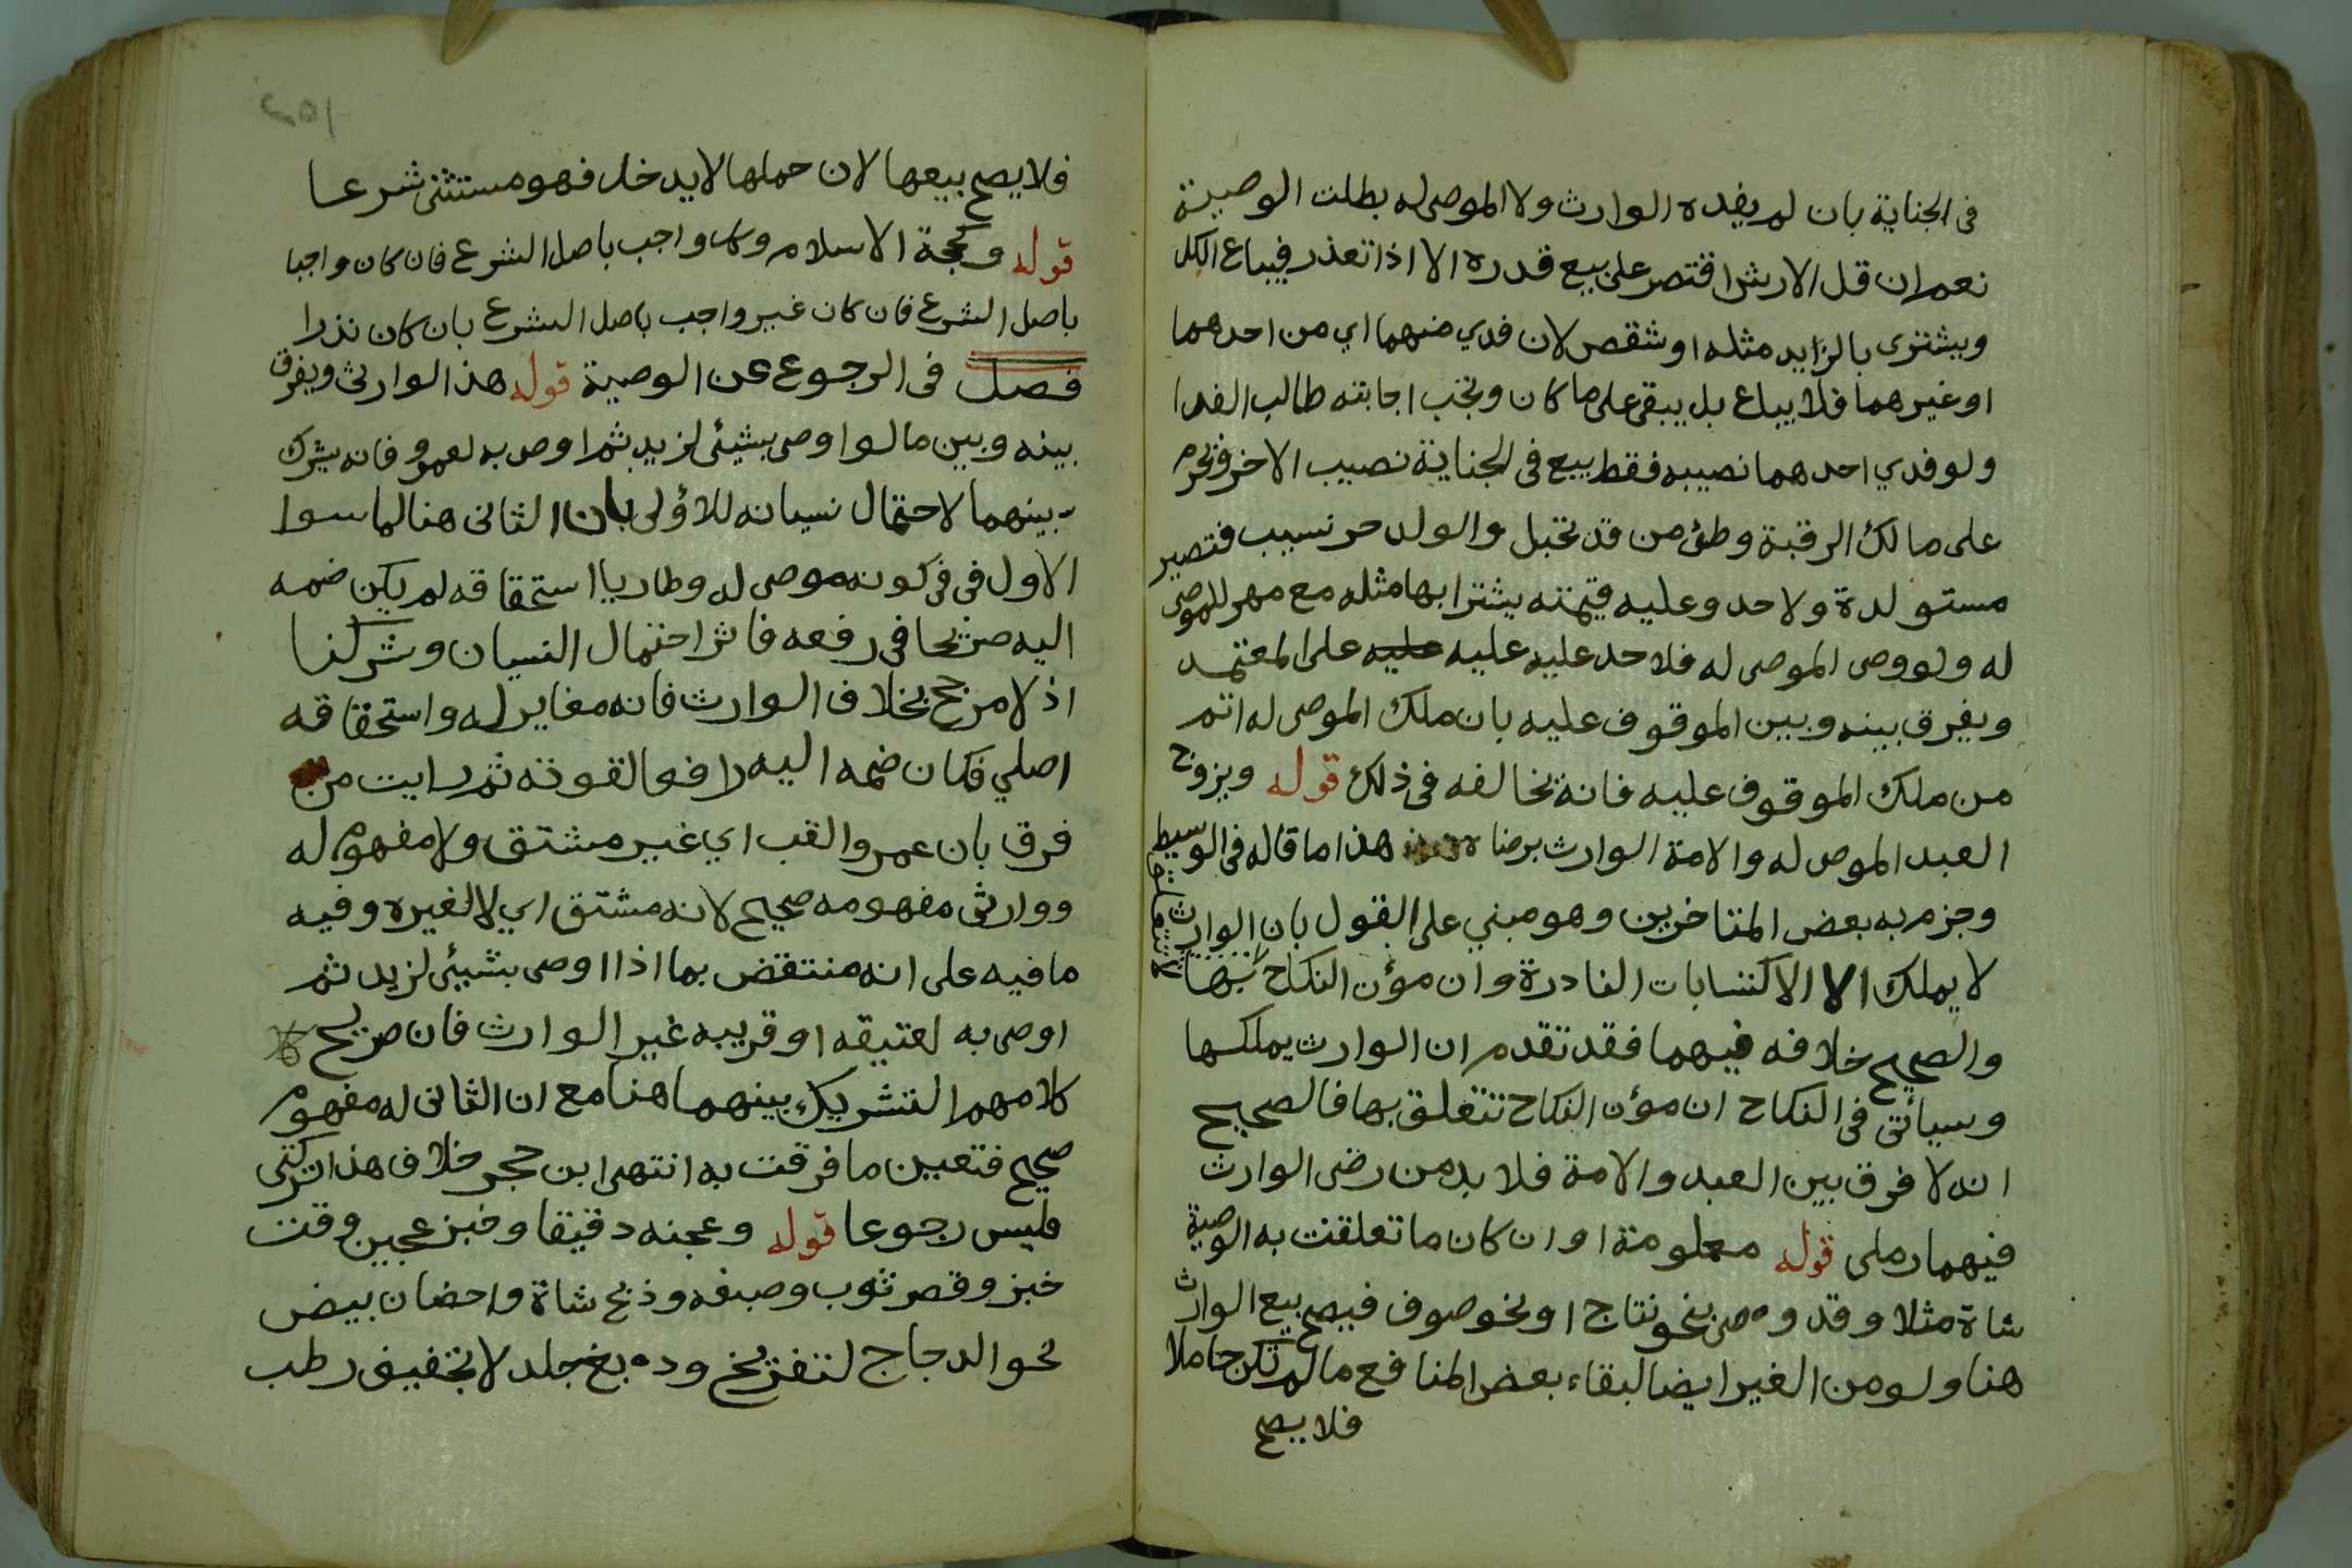 فى الجناية بان لم يفده الوارث ولا الموصى له بطلت الوصية
نعم ان قل الارش اقتصر على بيع قدره الا اذا تعذر فيباع الكل
ويشترى بالزايد مثله او شقص لان فدي منهما اي من احدهما
او غيرهما فلا يباع بل يبقى على ما كان وتجب اجابته طالب الفدا
ولو فدي احدهما نصيبه فقط بيع فى الجناية نصيب الاخر ويحرم
على مالك الرقبة وطئ من قد تحبل والولد حر نسيب فتصير
مستولدة ولا حد وعليه قيمته يشترا بها مثله مع مهر للموصى
له ولو وصى الموصى له فلا حد عليه عليه عليه على المعتمد
ويفرق بينه وبين الموقوف عليه بان ملك الموصى له اتم
من ملك الموقوف عليه فانه تخالفه فى ذلك قوله ويزوج
العبد الموص له والامة الوارث برضاه هذا ما قاله فى الوسيط
وجزم به بعض المتاخرين وهو مبني على القول بان الوارث
لا يملك الا الاكتسابات النادرة وان مؤن النكاح لا تتعلق بها
والصحيح خلافه فيهما فقد تقدم ان الوارث يملكها
وسيأتى فى النكاح ان مؤن النكاح تتعلق بها فالصحيح
انه لا فرق بين العبد والامة فلا بد من رضى الوارث
فيهما رملى قوله معلومة او ان كان ما تعلقت به الوصية
شاة مثلا وقد وصى بنحو نتاج او نحو صوف فيصح بيع الوارث
هنا ولو من الغير ايضا لبقاء بعض المنافع ما لم تكن حاملا
فلا يصح
فلا يصح بيعها لان حملها لا يدخل فهو مستثنى شرعا
قوله وكحجة الاسلام وكل واجب باصل الشرع فان كان واجبا
باصل الشرع فان كان غير واجب باصل الشرع بان كان نذرا
فصل فى الرجوع عن الوصية قوله هذا لوارثى ويفرق
بينه وبين ما لو اوصى بشيئى لزيد ثم اوص به لعمرو فانه يشرك
بينهما لاحتمال نسيانه للاؤلى بان الثانى هنا لما سوا
الاول فى فى كونه موصى له وطاريا استحقاقه لم يكن ضمه
اليه صريحا فى رفعه فاثر احتمال النسيان وشركنا
اذ لا مرجح بخلاف الوارث فانه مغاير له واستحقاقه
اصلي فكان ضمه اليه رافعا لقوته ثم رايت من
فرق بان عمرو القب اي غير مشتق ولا مفهوم له
ووارثى مفهومه صحيح لانه مشتق اي لا لغيره وفيه
ما فيه على انه منتقض بما اذا اوصى بشيئى لزيد ثم
اوصى به لعتيقه او قريبه غير الوارث فان صريح
كلامهم التشريك بينهما هنا مع ان الثانى له مفهوم
صحيح فتعين ما فرقت به انتهى ابن حجر خلاف هذا تركتى
فليس رجوعا قوله وعجنه دقيقا وخبز عجين وقت
خبز وقصر ثوب وصبغه وذبح شاة واحضان بيض
نحو الدجاج لتفريخ ودبغ جلد لا تجفيف رطب